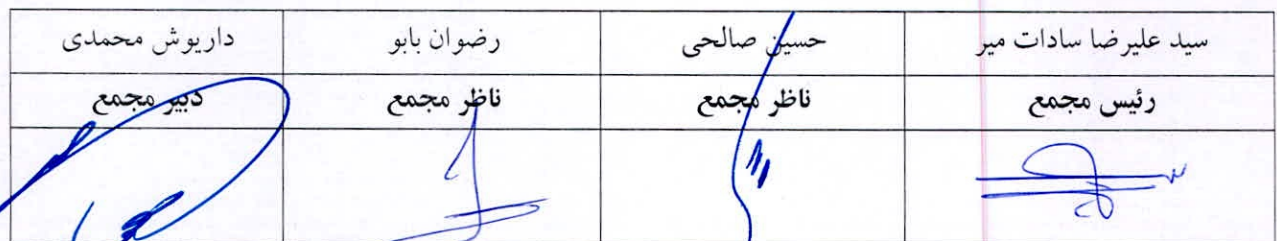 سید علیرضا سادات میر	حسین صالحی	رضوان بابو	داریوش محمدی
رئیس مجمع	ناظر مجمع	ناظر مجمع	دبیر مجمع